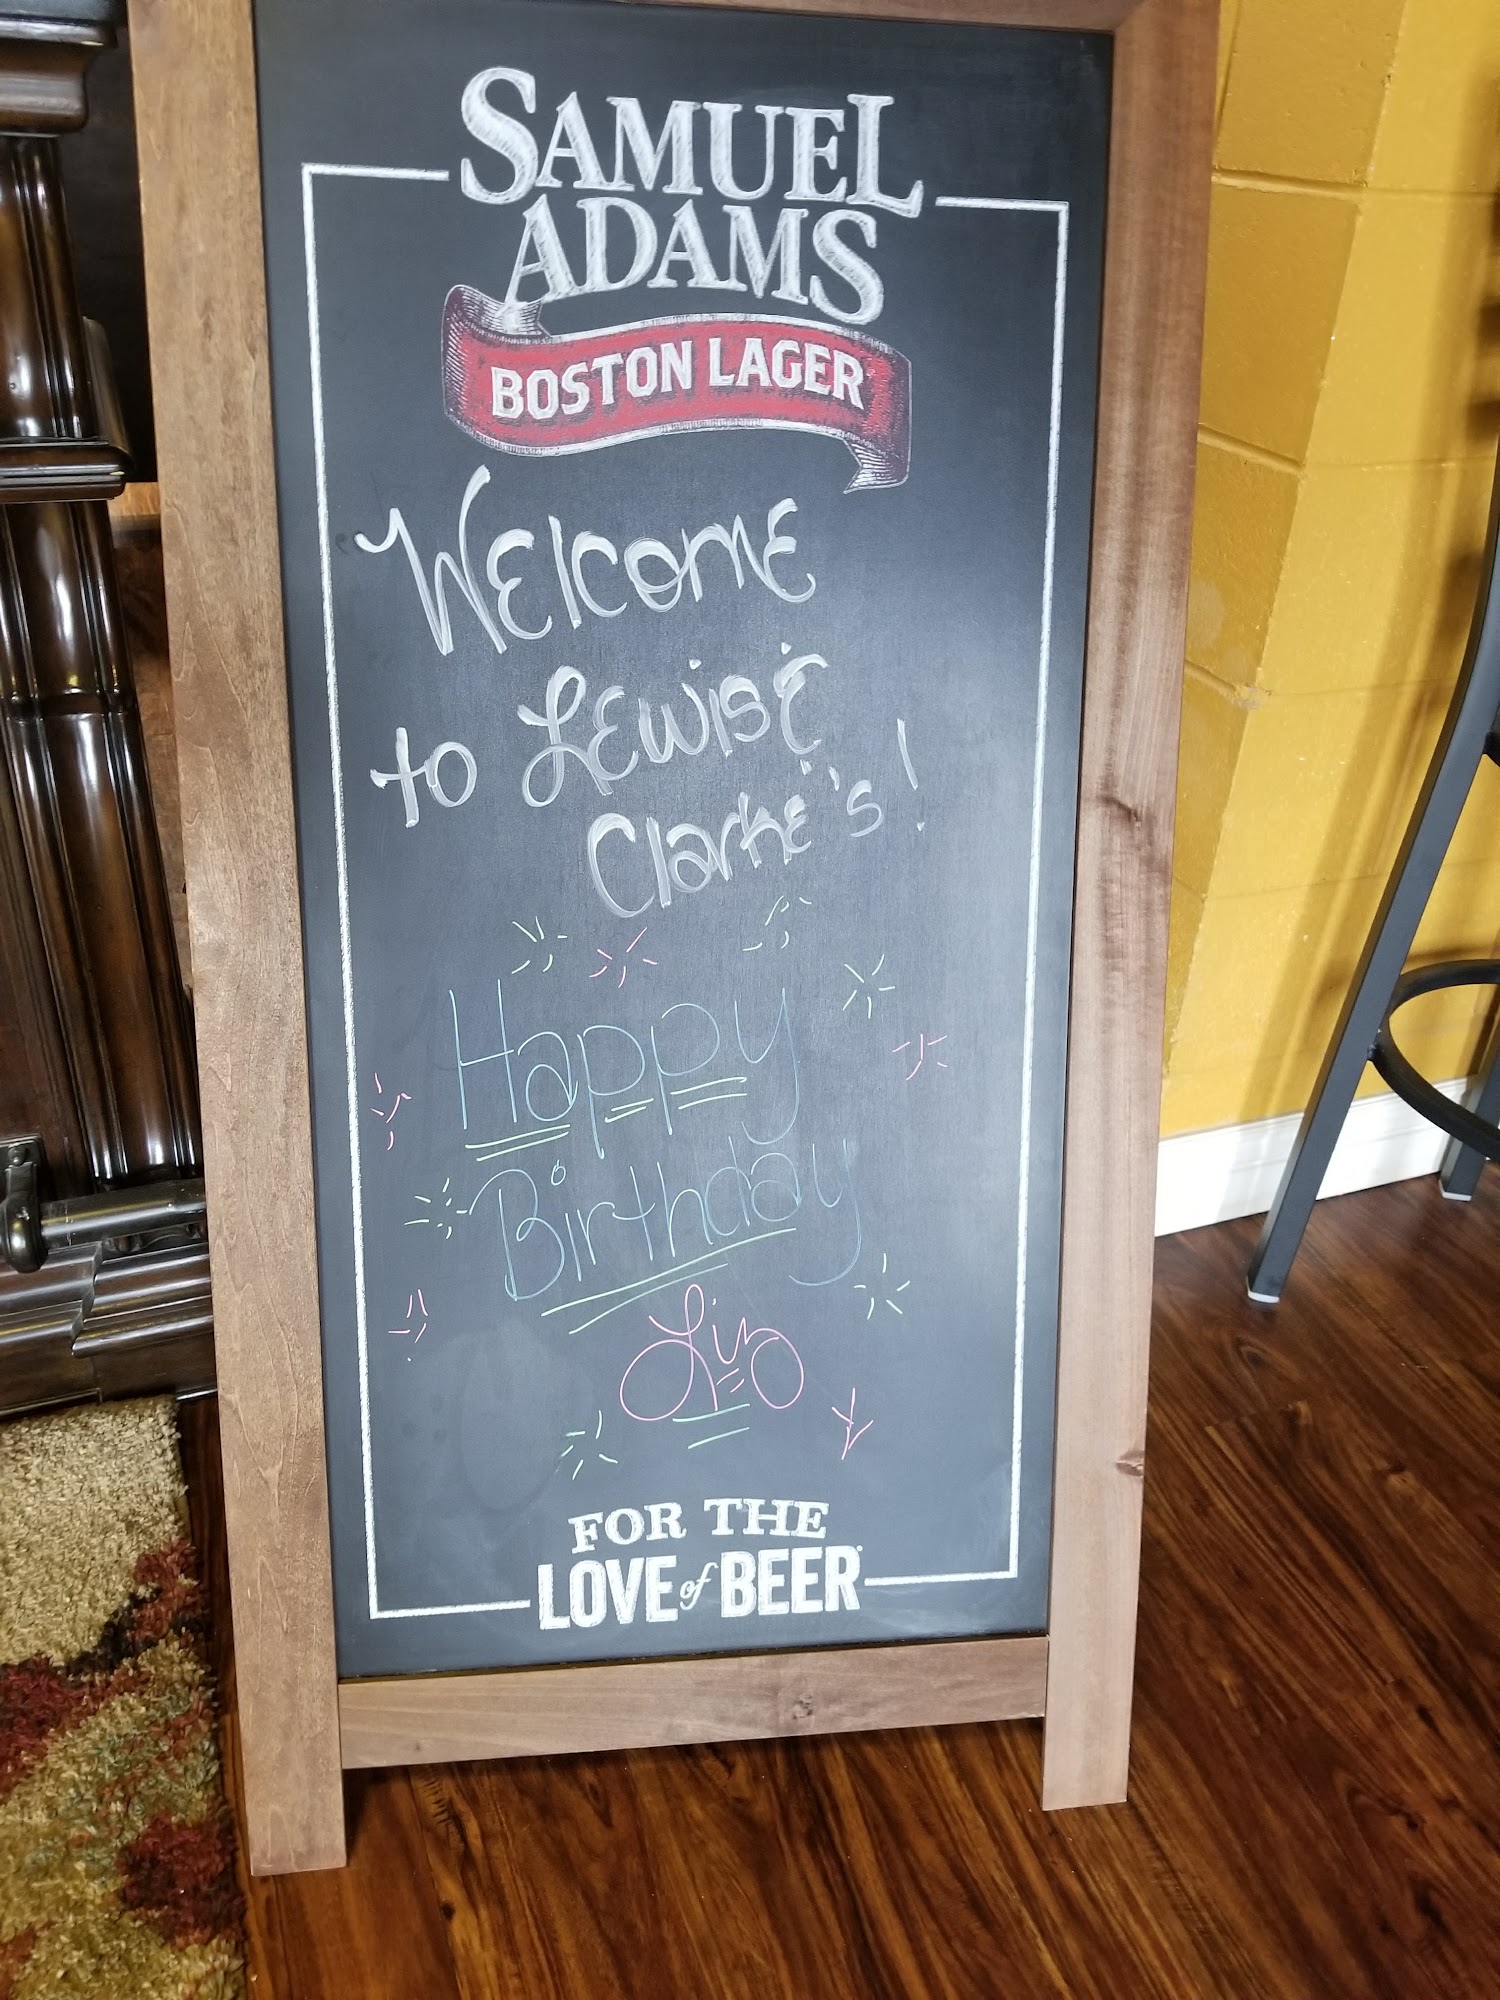 SAMUEL
ADAMS
BOSTON LAGER
Welcome
to Lewis &
Clarke's!
Happy
Birthday
Liz
FOR THE
LOVE of BEER